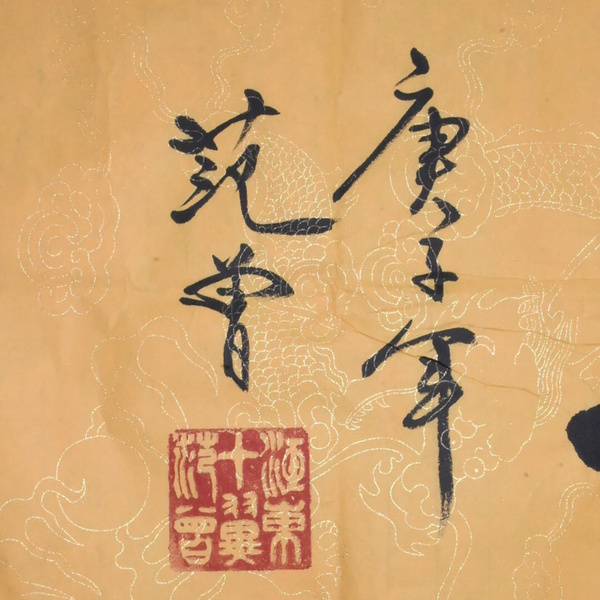 庚子年
范曾
江東
十翼
范曾